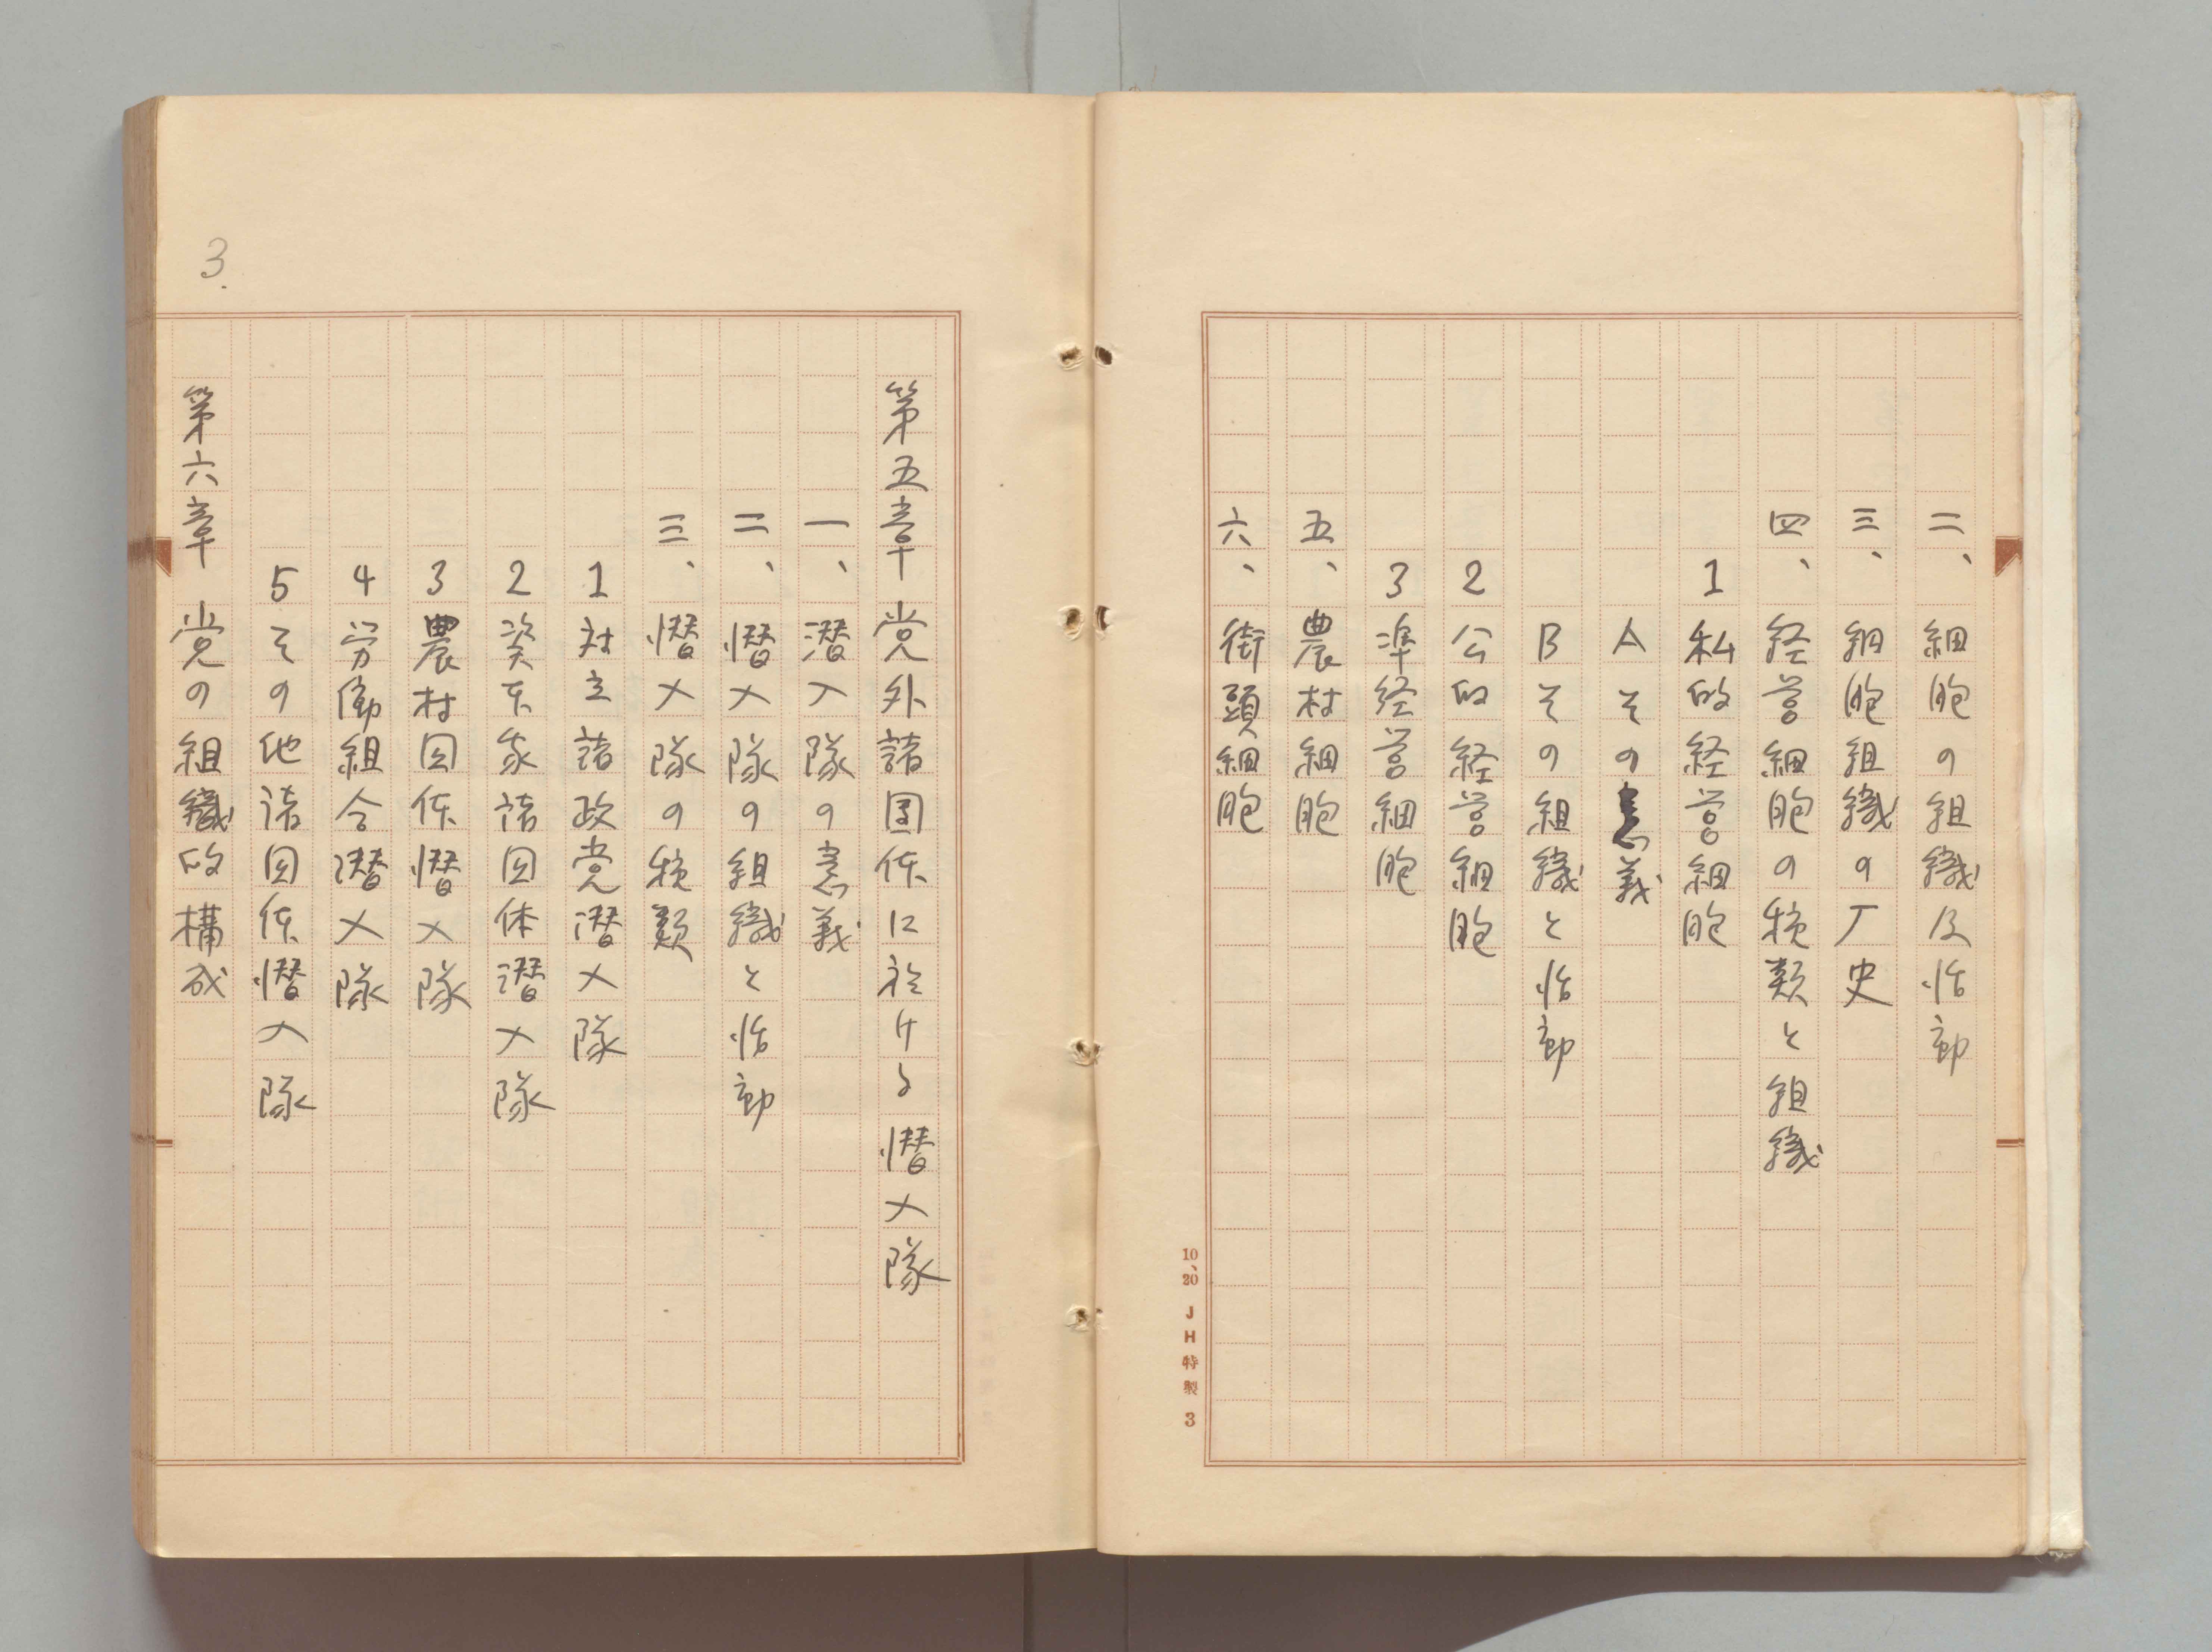 二、細胞の組織及活動
三、細胞組織の厂史
四、経営細胞の種類と組織
1 私的経営細胞
A その意義
B その組織と活動
2 公的経営細胞
3 準経営細胞
五、農村細胞
六、街頭細胞
10、20 JH特製 3
3.
第五章 党外諸団体に於ける潜入隊
一、潜入隊の意義
二、潜入隊の組織と活動
三、潜入隊の種類
1 対立諸政党潜入隊
2 資本家諸団体潜入隊
3 農村団体潜入隊
4 労働組合潜入隊
5 その他諸団体潜入隊
第六章 党の組織的構成